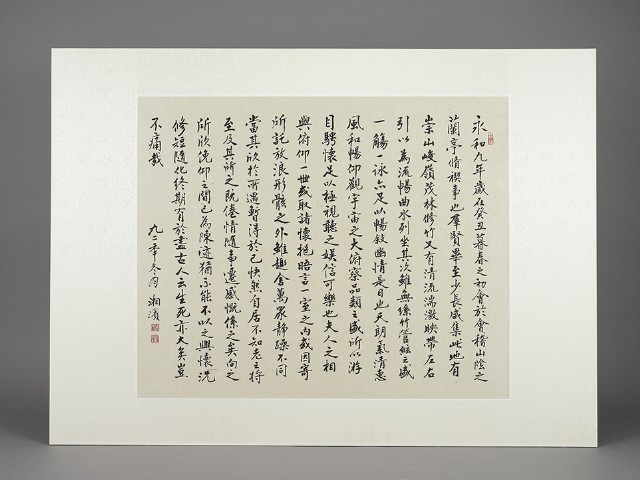 永和九年歲在癸丑暮春之初會於會稽山陰之
蘭亭脩禊事也羣賢畢至少長咸集此地有
崇山峻嶺茂林修竹又有清流湍激映帶左右
引以為流觴曲水列坐其次雖無絲竹管絃之盛
一觴一詠亦足以暢敘幽情是日也天朗氣清惠
風和暢仰觀宇宙之大俯察品類之盛所以游
目騁懷足以極視聽之娛信可樂也夫人之相
與俯仰一世或取諸懷抱晤言一室之內或因寄
所託放浪形骸之外雖趣舍萬殊靜躁不同
當其欣於所遇暫得於己快然自足不知老之將
至及其所之既倦情隨事遷感慨係之矣向之
所欣俛仰之間已為陳迹猶不能不以之興懷況
修短隨化終期有於盡古人云生死亦大矣豈
不痛哉
九二年冬月 湘濱